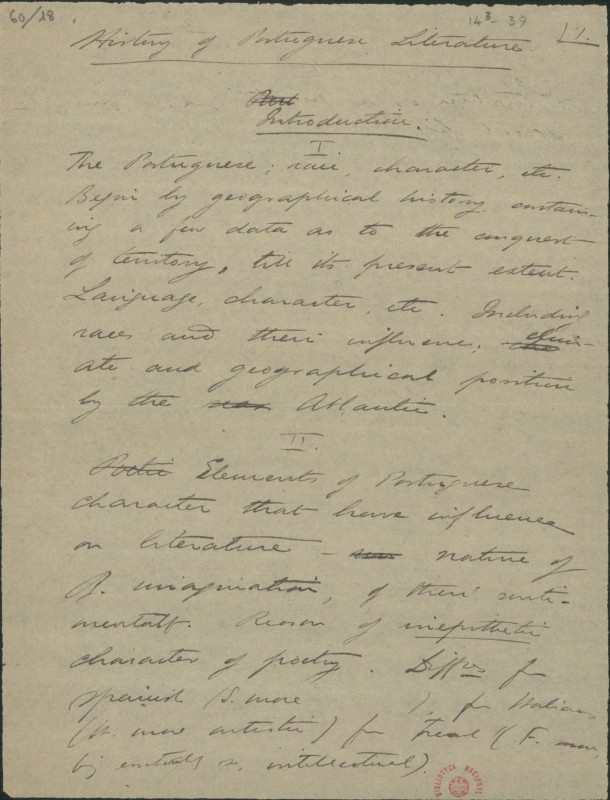 60/18
14³-39
1.
History of Portuguese Literature.
Introduction.
I
The Portuguese; race, character, etc.
Begin by geographical history contain-
ing a few data as to the conquest
of territory, till its present extent.
Language, character, etc. Including
races and their influence; clim-
ate and geographical position
by the Atlantic.
II.
Poetic Elements of Portuguese
character that have influence
on literature — nature of
P. imagination, of their senti-
mentality. Reason of
character of poetry. Diffces fr
Spanish (S. more ), fr Italian
(It. more artistic) fr French (F. more
intellectual).
BIBLIOTECA NACIONAL